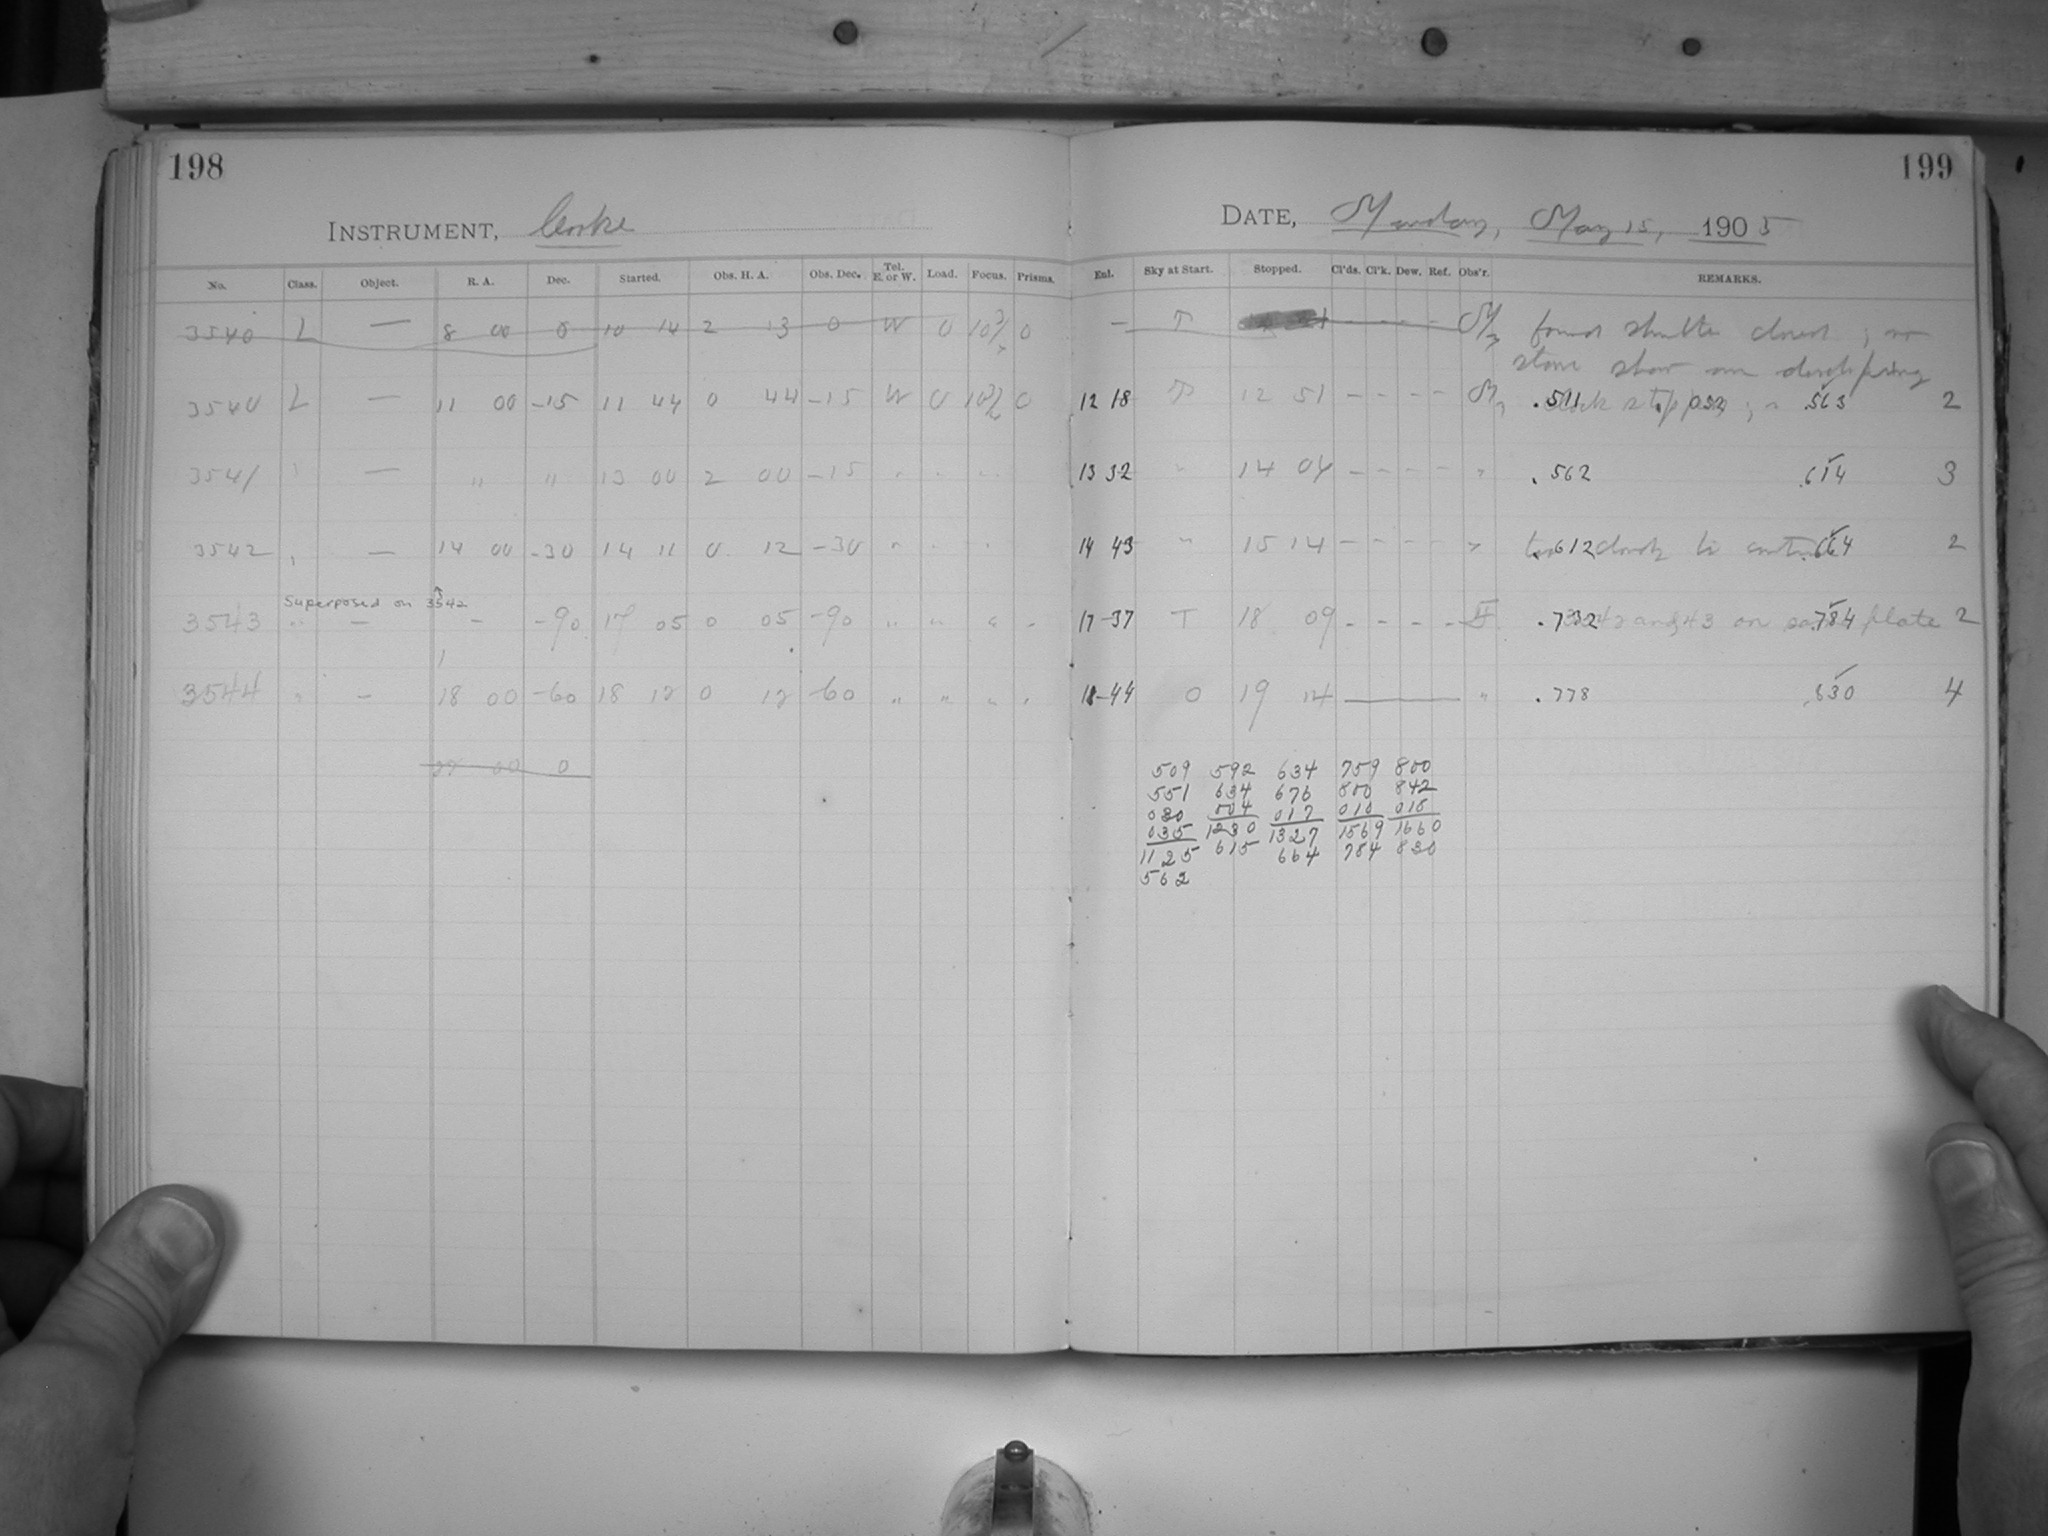 198
199
INSTRUMENT, Cooke
DATE, Monday, May 15, 1905
No. Class. Object. R. A. Dec. Started. Obs. H. A. Obs. Dec. Tel. E. or W. Load. Focus. Prisms. Enl. Sky at Start. Stopped. Cl'ds. Cl'k. Dew. Ref. Obs'r. REMARKS.
3540 L — 8 00 0 10 14 2 13 0 W 0 0 — T - - - - found shutter closed ; no
stars show on developing
3540 L — 11 00 -15 11 44 0 44 -15 W 0 0 12 18 T 12 51 - - - - .511 clock stopped .563 2
3541 — " " 13 00 2 00 -15 " " " 13 32 " 14 04 - - - - " .562 .614 3
3542 — 14 00 -30 14 11 0 12 -30 " " " 14 43 " 15 14 - - - - " .612 cloudy to .664 2
Superposed on 3542
3543 " — - -90 17 05 0 05 -90 " " " " 17-37 T 18 09 - - - - .732 3542 and 43 on same .784 plate 2
3544 " - 18 00 -60 18 12 0 12 -60 " " " " 18-44 0 19 14 — " .778 .830 4
22 00 0
509 592 634 759 800
551 634 676 800 842
030 004 017 010 018
035 1230 1327 1569 1660
1125 615 664 784 830
562